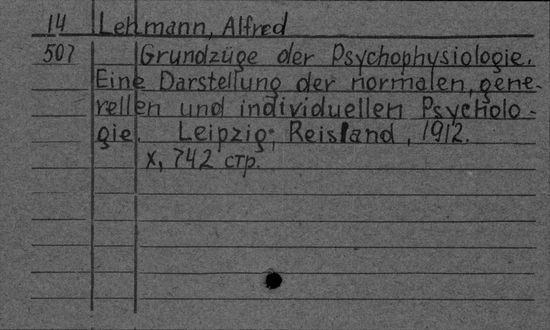 14 Lehmann, Alfred
507 Grundzüge der Psychophysiologie.
Eine Darstellung der normalen, gene-
rellen und individuellen Psycholo-
gie. Leipzig, Reisland, 1912.
X, 742 стр.